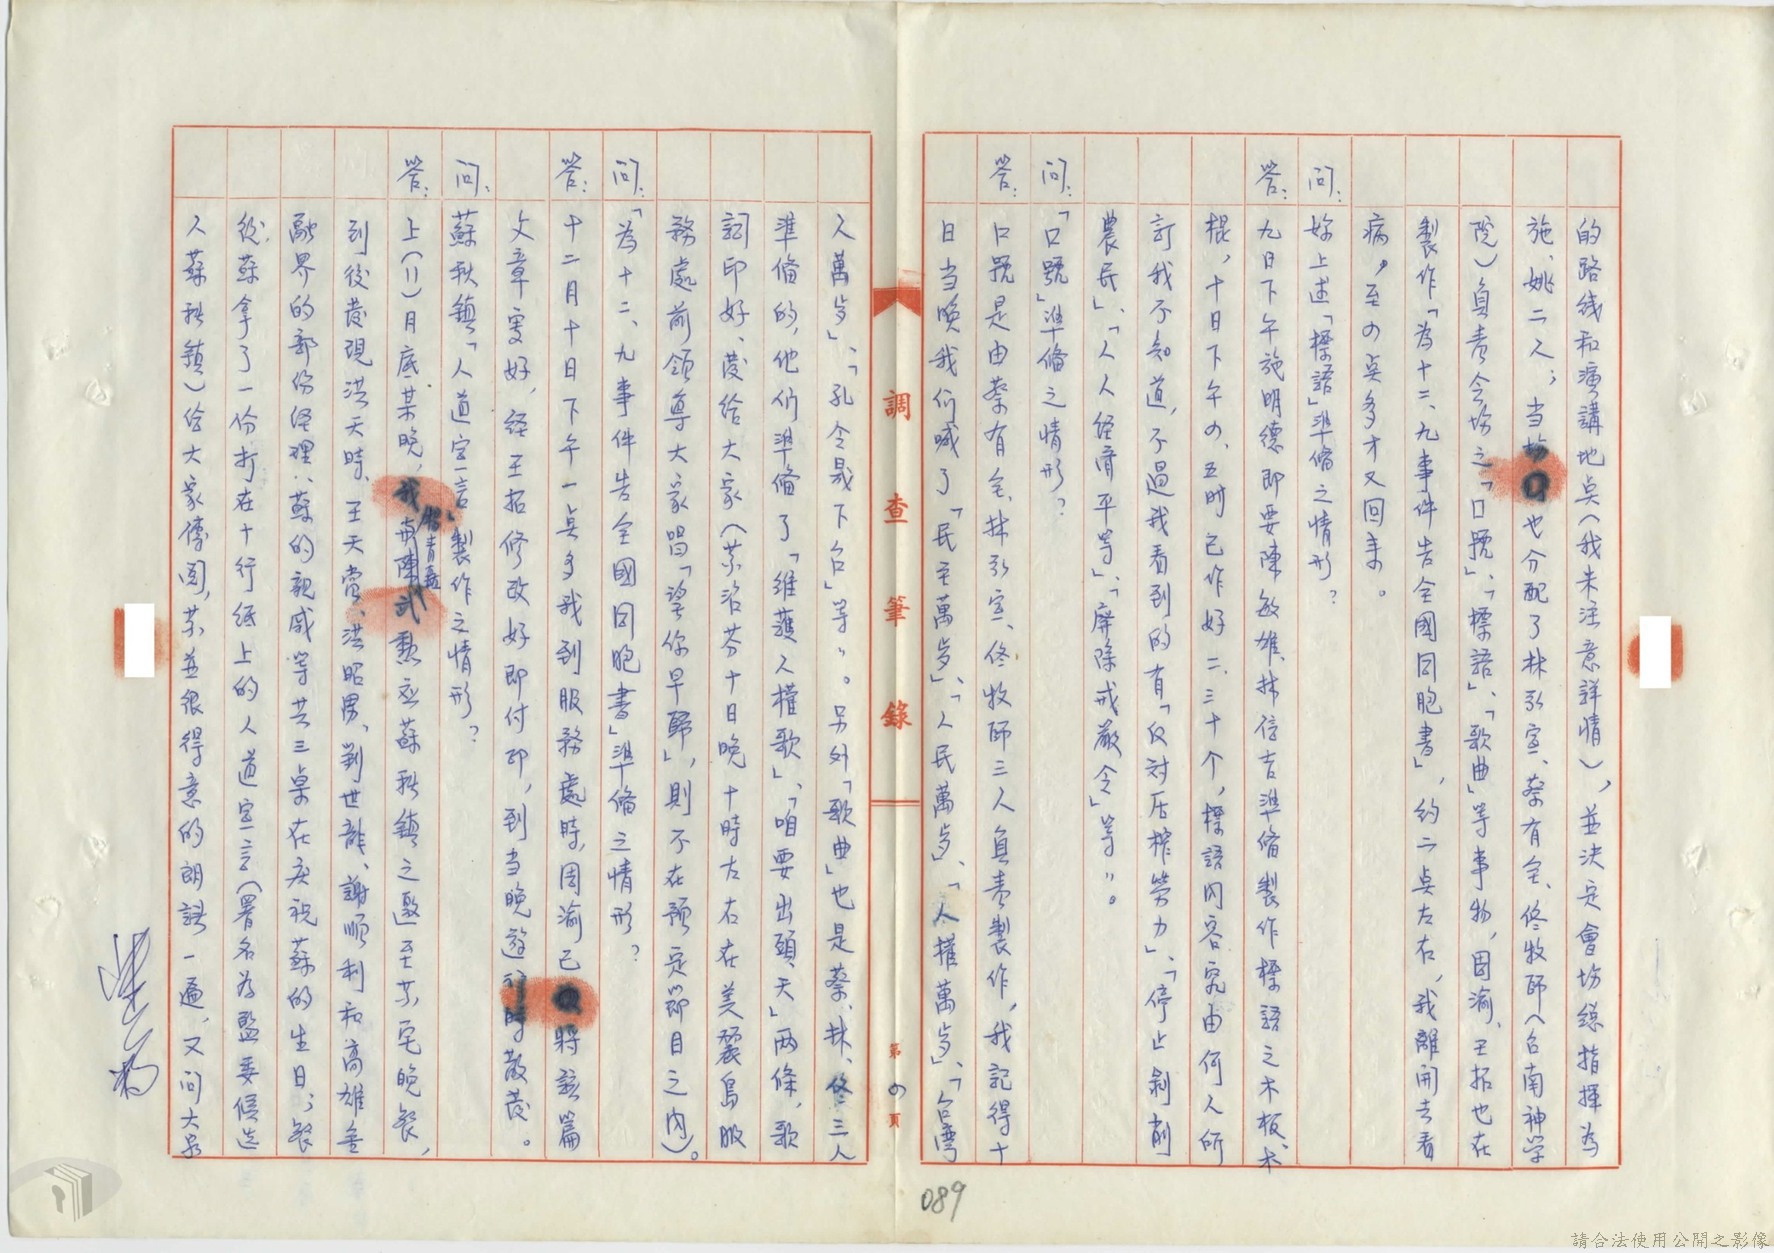 的路线和演講地奌（我未注意詳情），並決定會场總指揮為
施、姚二人；当场也分配了林弘宣、蔡有全、佟牧师（台南神学
院）負责会场之「口號」、「標語」、「歌曲」等事物，周渝、王拓也在
製作「為十二、九事件告全國同胞書」，約二奌左右，我離開去看
病，至四奌多才又回来。
問：妳上述「標語」準俻之情形？
答：九日下午施明德即要陳敏雄、林信吉準俻製作標語之木板、木
棍，十日下午四、五时已作好二、三十个，標語内容究由何人所
訂我不知道，不過我看到的有「反対压榨勞力」、「停止剝削
農民」、「人人經済平等」、「屏除戒嚴令」等〃。
問：「口號」準俻之情形？
答：口號是由蔡有全、林弘宣、佟牧师三人負責製作，我記得十
日当晚我们喊了「民主萬岁」、「人民萬岁」、「人權萬岁」、「台灣
人萬岁」、「孔令晟下台」等〃。另外「歌曲」也是蔡、林、佟三人
準俻的，他们準俻了「維護人權歌」、「咱要出頭天」两條，歌
詞印好、發给大家（范治芬十日晚十時左右在美麗島服
務處前领導大家唱「望你早歸」，則不在預定節目之内）。
問：「為十二、九事件告全國同胞書」準俻之情形？
答：十二月十日下午一奌多我到服務處時，周渝已將該篇
文章寫好，經王拓修改好即付印，到当晚遊行時散發。
問：蘇秋鎮「人道宣言」製作之情形？
答：上（11）月底某晚，我與陳武勲应蘇秋鎮之邀至其宅晚餐，
到後發現洪天時、王天賞、洪昭男、劉世龍、謝順利和高雄金
融界的部份經理、蘇的親戚等共三桌在庆祝蘇的生日；餐
後，蘇拿了一份打在十行纸上的人道宣言（署名為監委候选
人蘇秋鎮）给大家傳閲，其並很得意的朗讀一遍，又问大家
調查筆錄
第四頁
089
請合法使用公開之影像